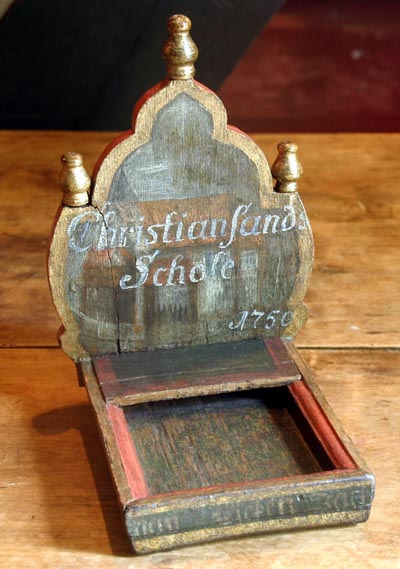 Christianſands
Schole
1750